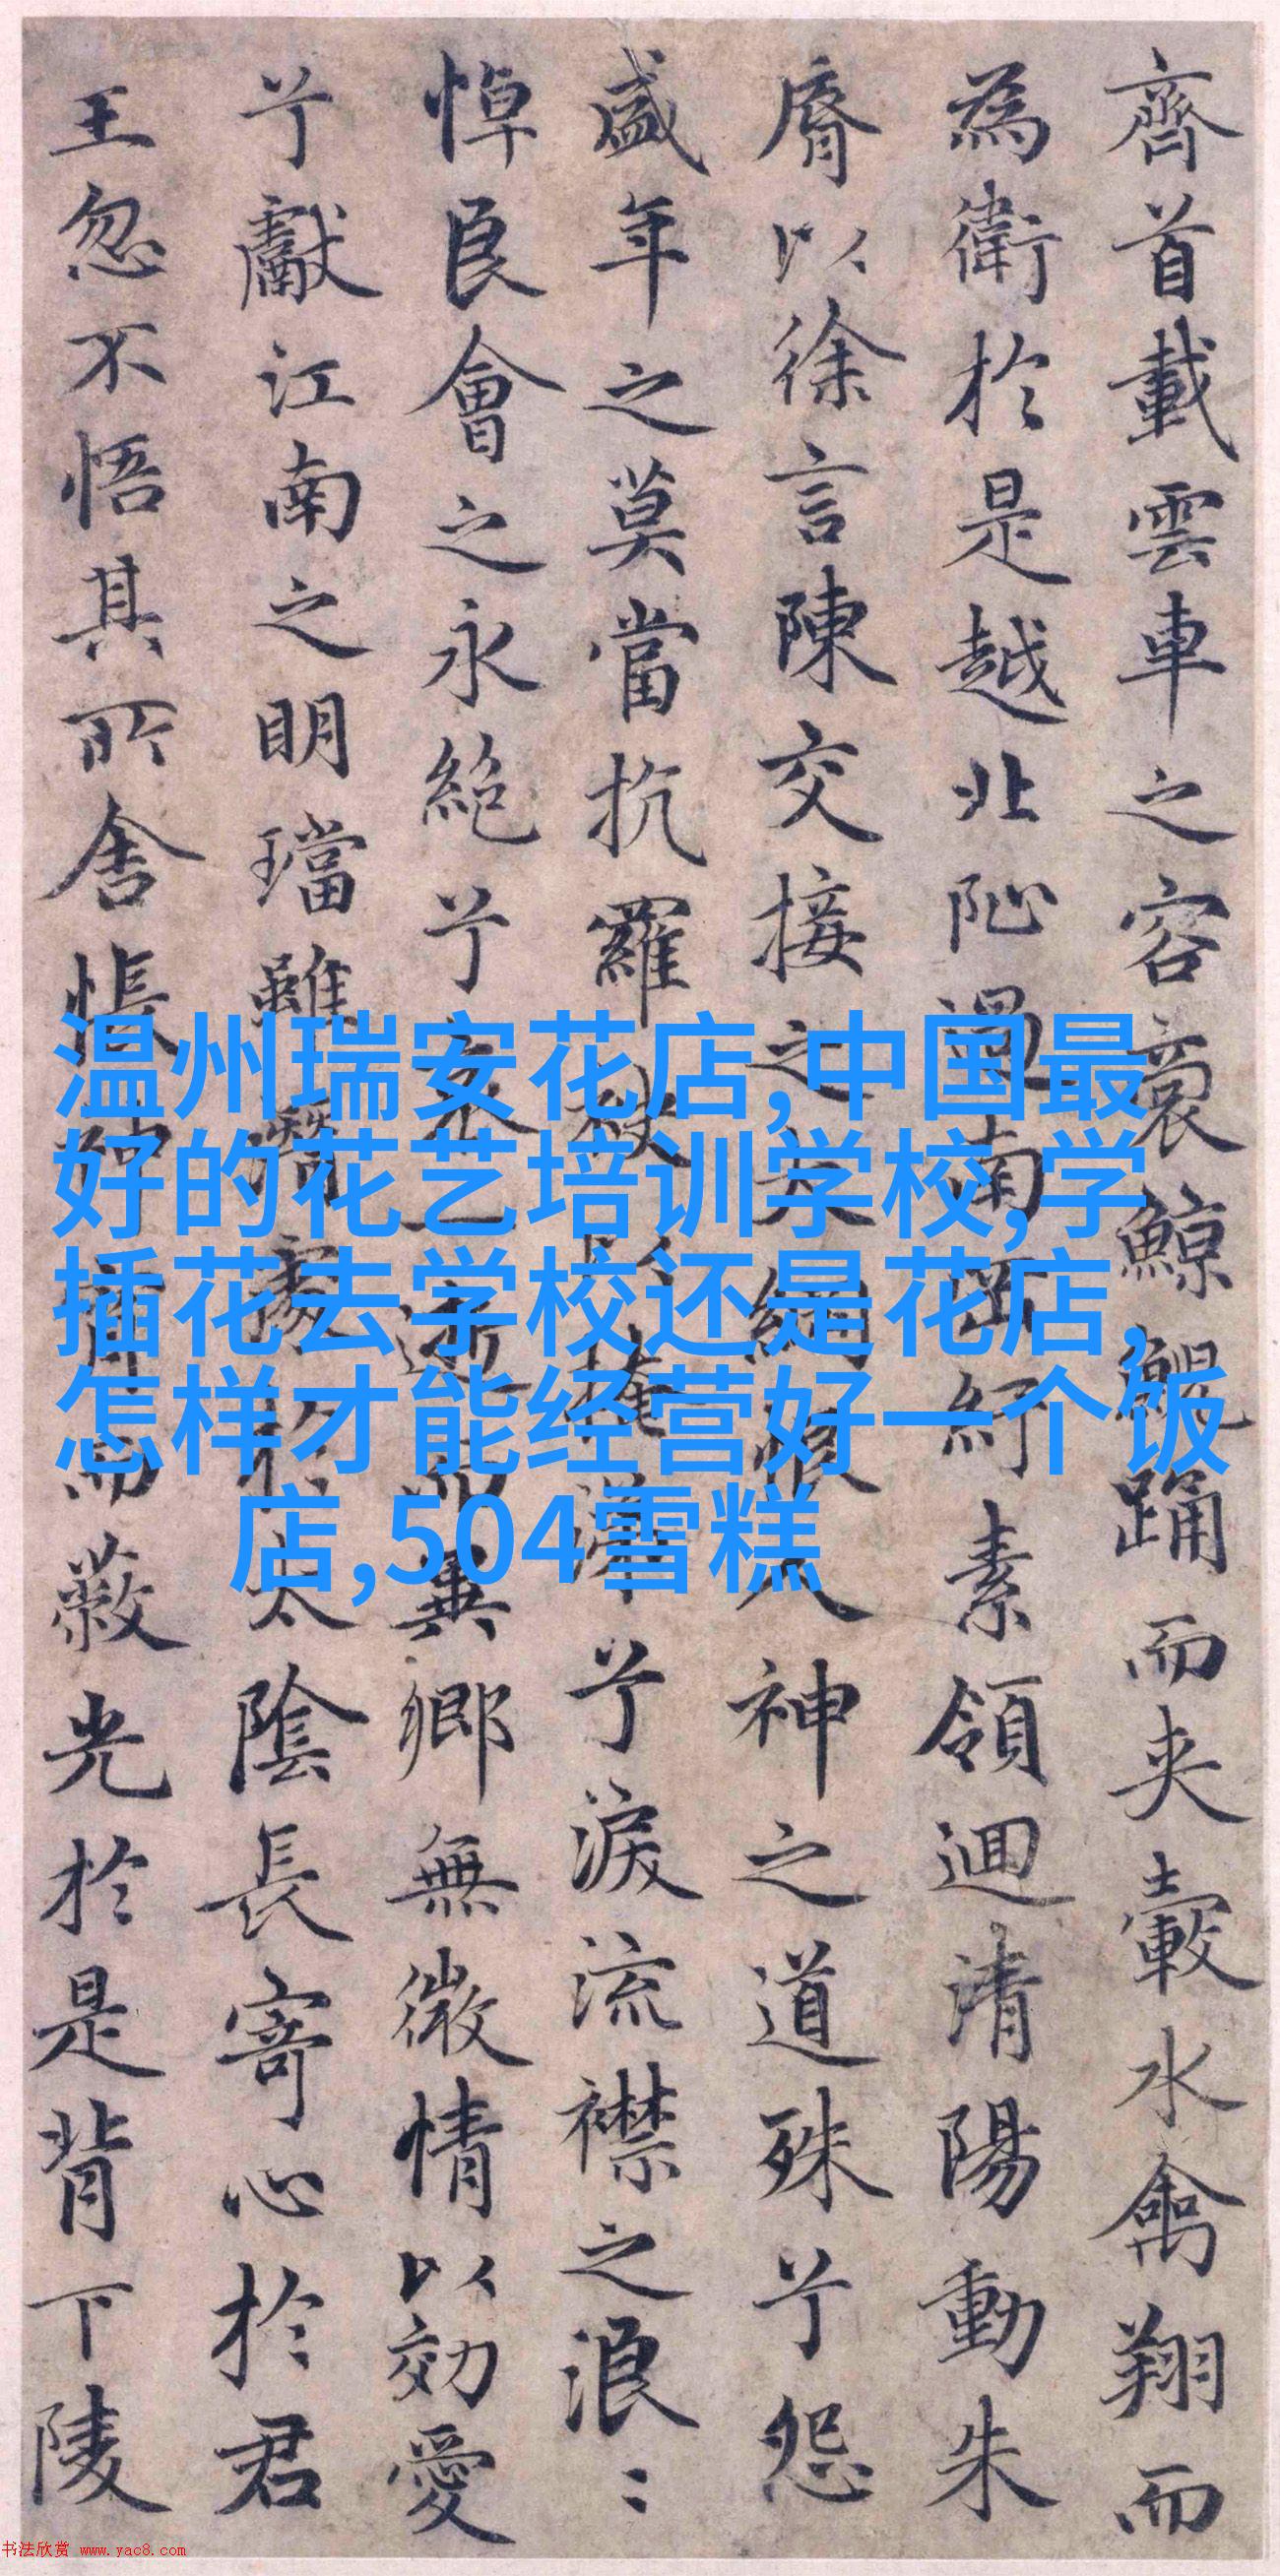 齊首載雲車之容裔鯨鯢踊而夾轂水禽翔而
為衛於是越北沚過南岡紆素領迴清陽動朱
脣以徐言陳交接之大綱恨人神之道殊兮怨
盛年之莫當抗羅袂以掩涕兮淚流襟之浪〻
悼良會之永絶兮哀一逝而異鄉無微情以効愛
兮獻江南之明璫雖潛處於太陰長寄心於君
王忽不悟其所舍悵神宵而蔽光於是背下陵
温州瑞安花店,中国最
好的花艺培训学校,学
插花去学校还是花店,
怎样才能经营好一个饭
店,504雪糕
书法欣赏 www.yac8.com